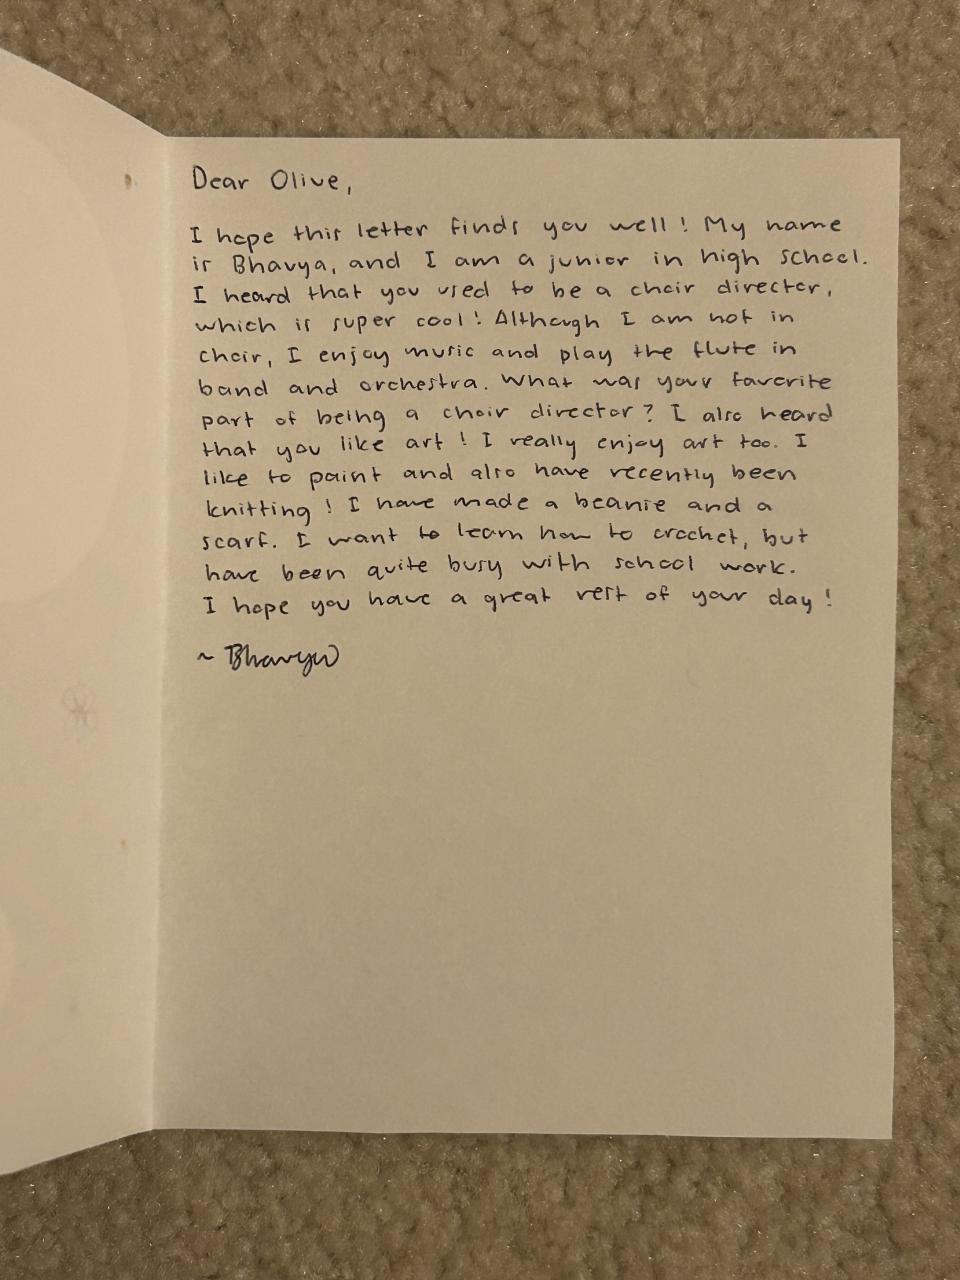 Dear Olive,
I hope this letter finds you well! My name
is Bhavya, and I am a junior in high school.
I heard that you used to be a choir director,
which is super cool! Although I am not in
choir, I enjoy music and play the flute in
band and orchestra. What was your favorite
part of being a choir director? I also heard
that you like art! I really enjoy art too. I
like to paint and also have recently been
knitting! I have made a beanie and a
scarf. I want to learn how to crochet, but
have been quite busy with school work.
I hope you have a great rest of your day!
~ Bhavya